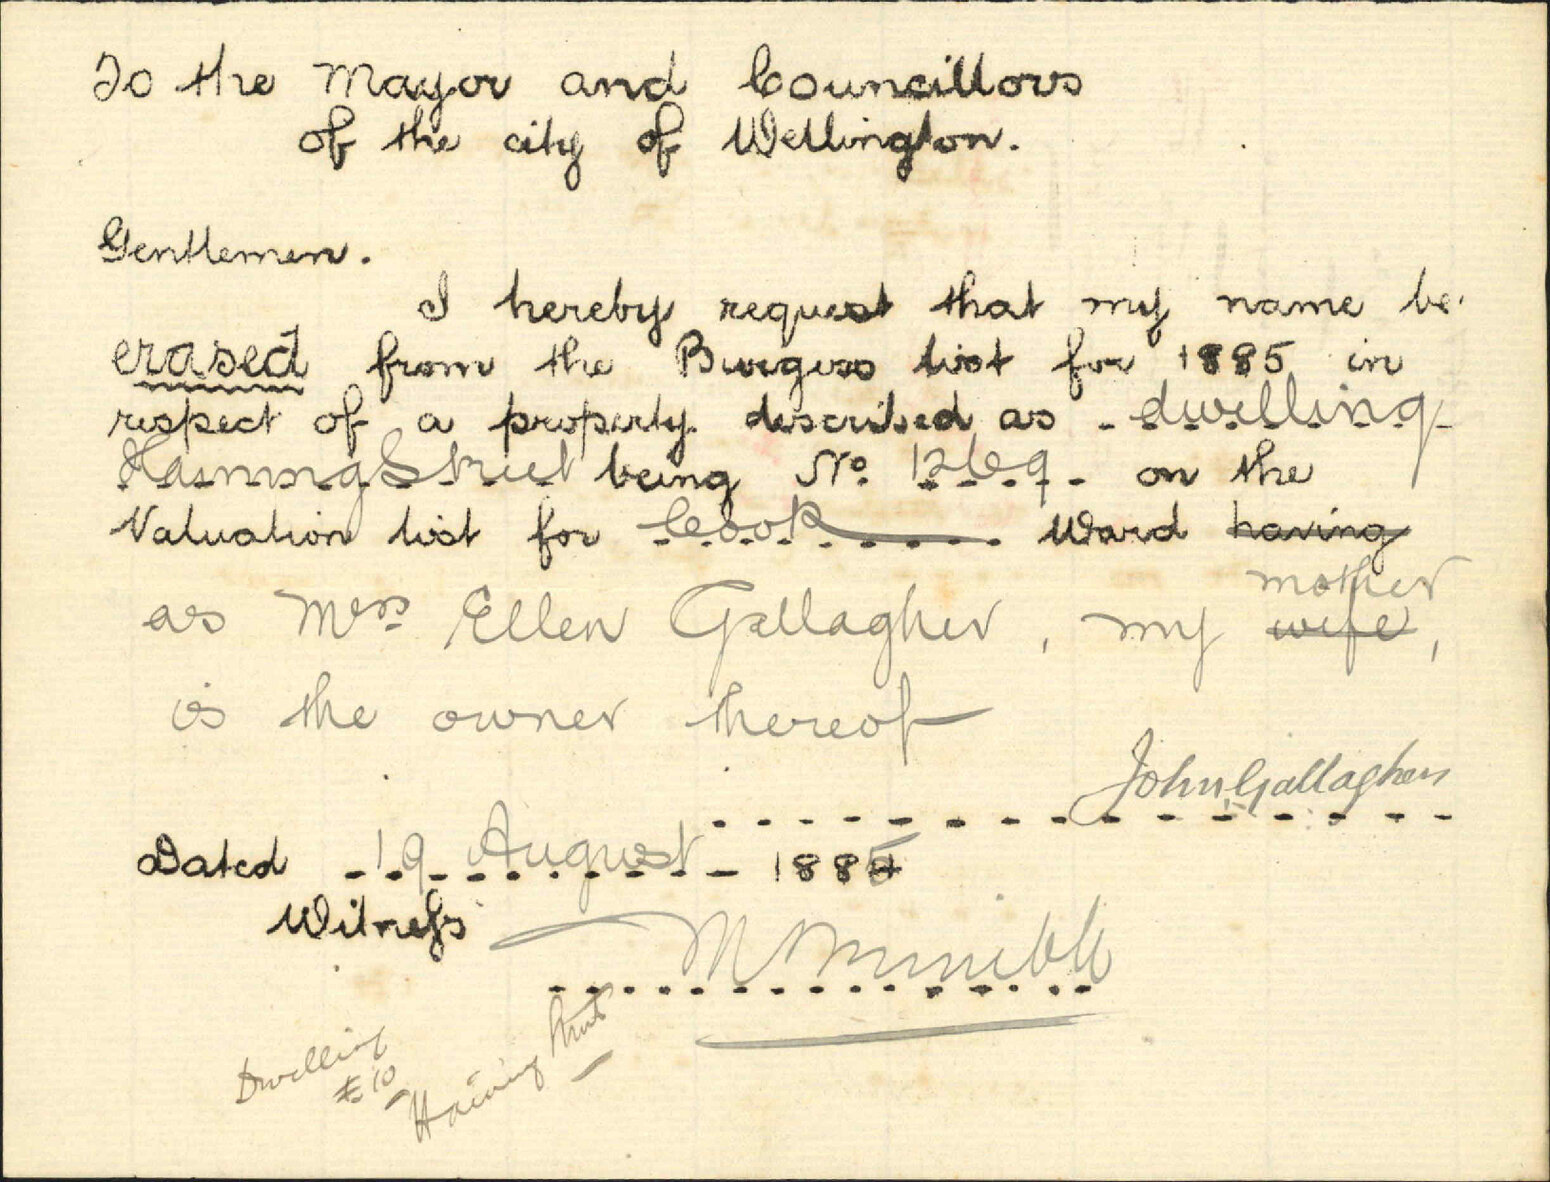 To the Mayor and Councillors
of the city of Wellington.
Gentlemen.
I hereby request that my name be
erased from the Burgess list for 1885 in
respect of a property described as dwelling
Haining Street being No. 1269 on the
Valuation list for Cook Ward having
mother
as Mrs Ellen Gallagher, my wife,
is the owner thereof
John Gallagher
Dated 19 August 1885
Witness
Dwelling
£10
Haining Street